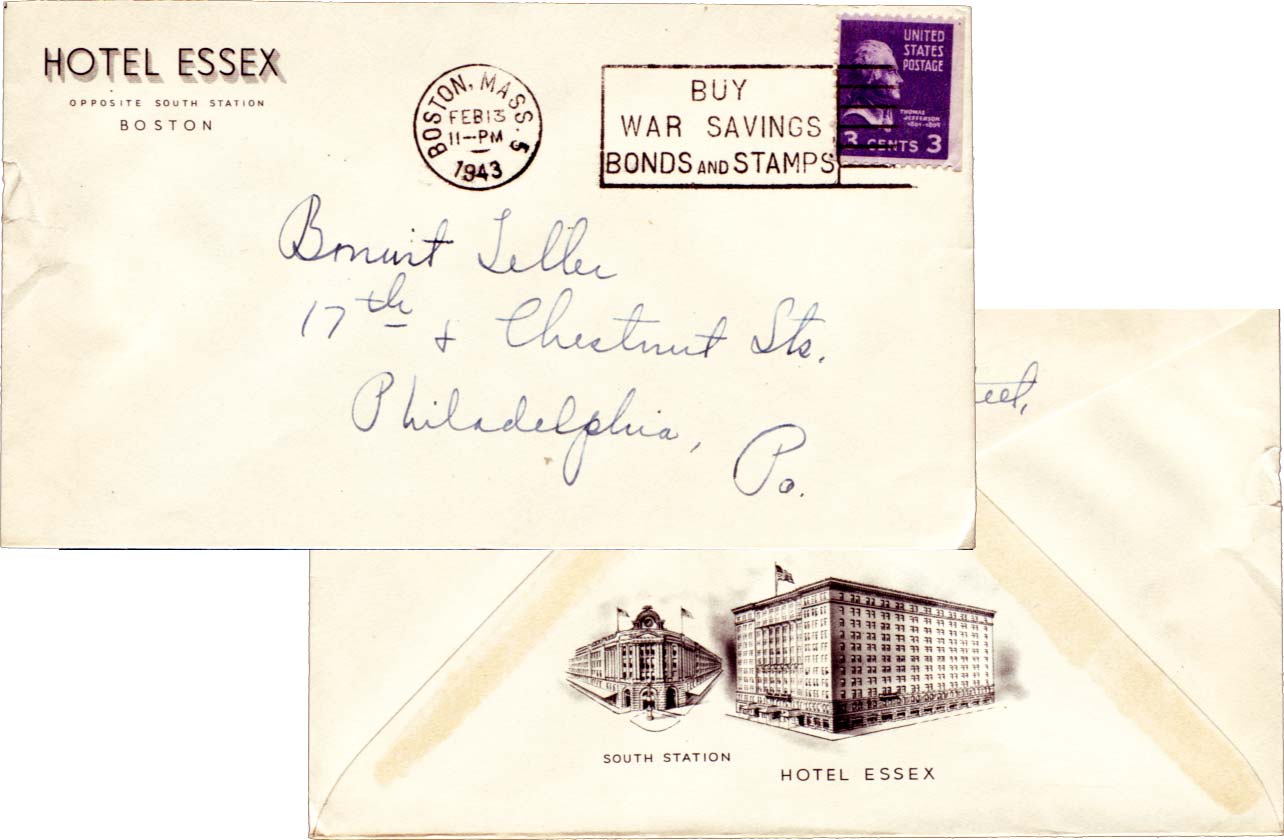 HOTEL ESSEX
OPPOSITE SOUTH STATION
BOSTON
BOSTON, MASS. 5
FEB 13
11-PM
1943
BUY
WAR SAVINGS
BONDS AND STAMPS
UNITED
STATES
POSTAGE
THOMAS
JEFFERSON
1801-1809
3 CENTS 3
Bonwit Teller
17th & Chestnut Sts.
Philadelphia, Pa.
eet,
SOUTH STATION
HOTEL ESSEX